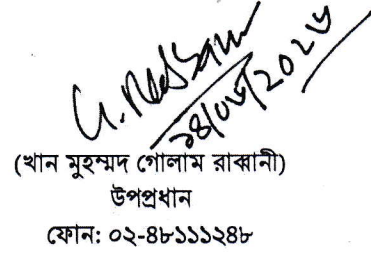 ১৪/০৬/২০২৬
(খান মুহম্মদ গোলাম রাব্বানী)
উপপ্রধান
ফোন: ০২-৪৮১১১২৪৮